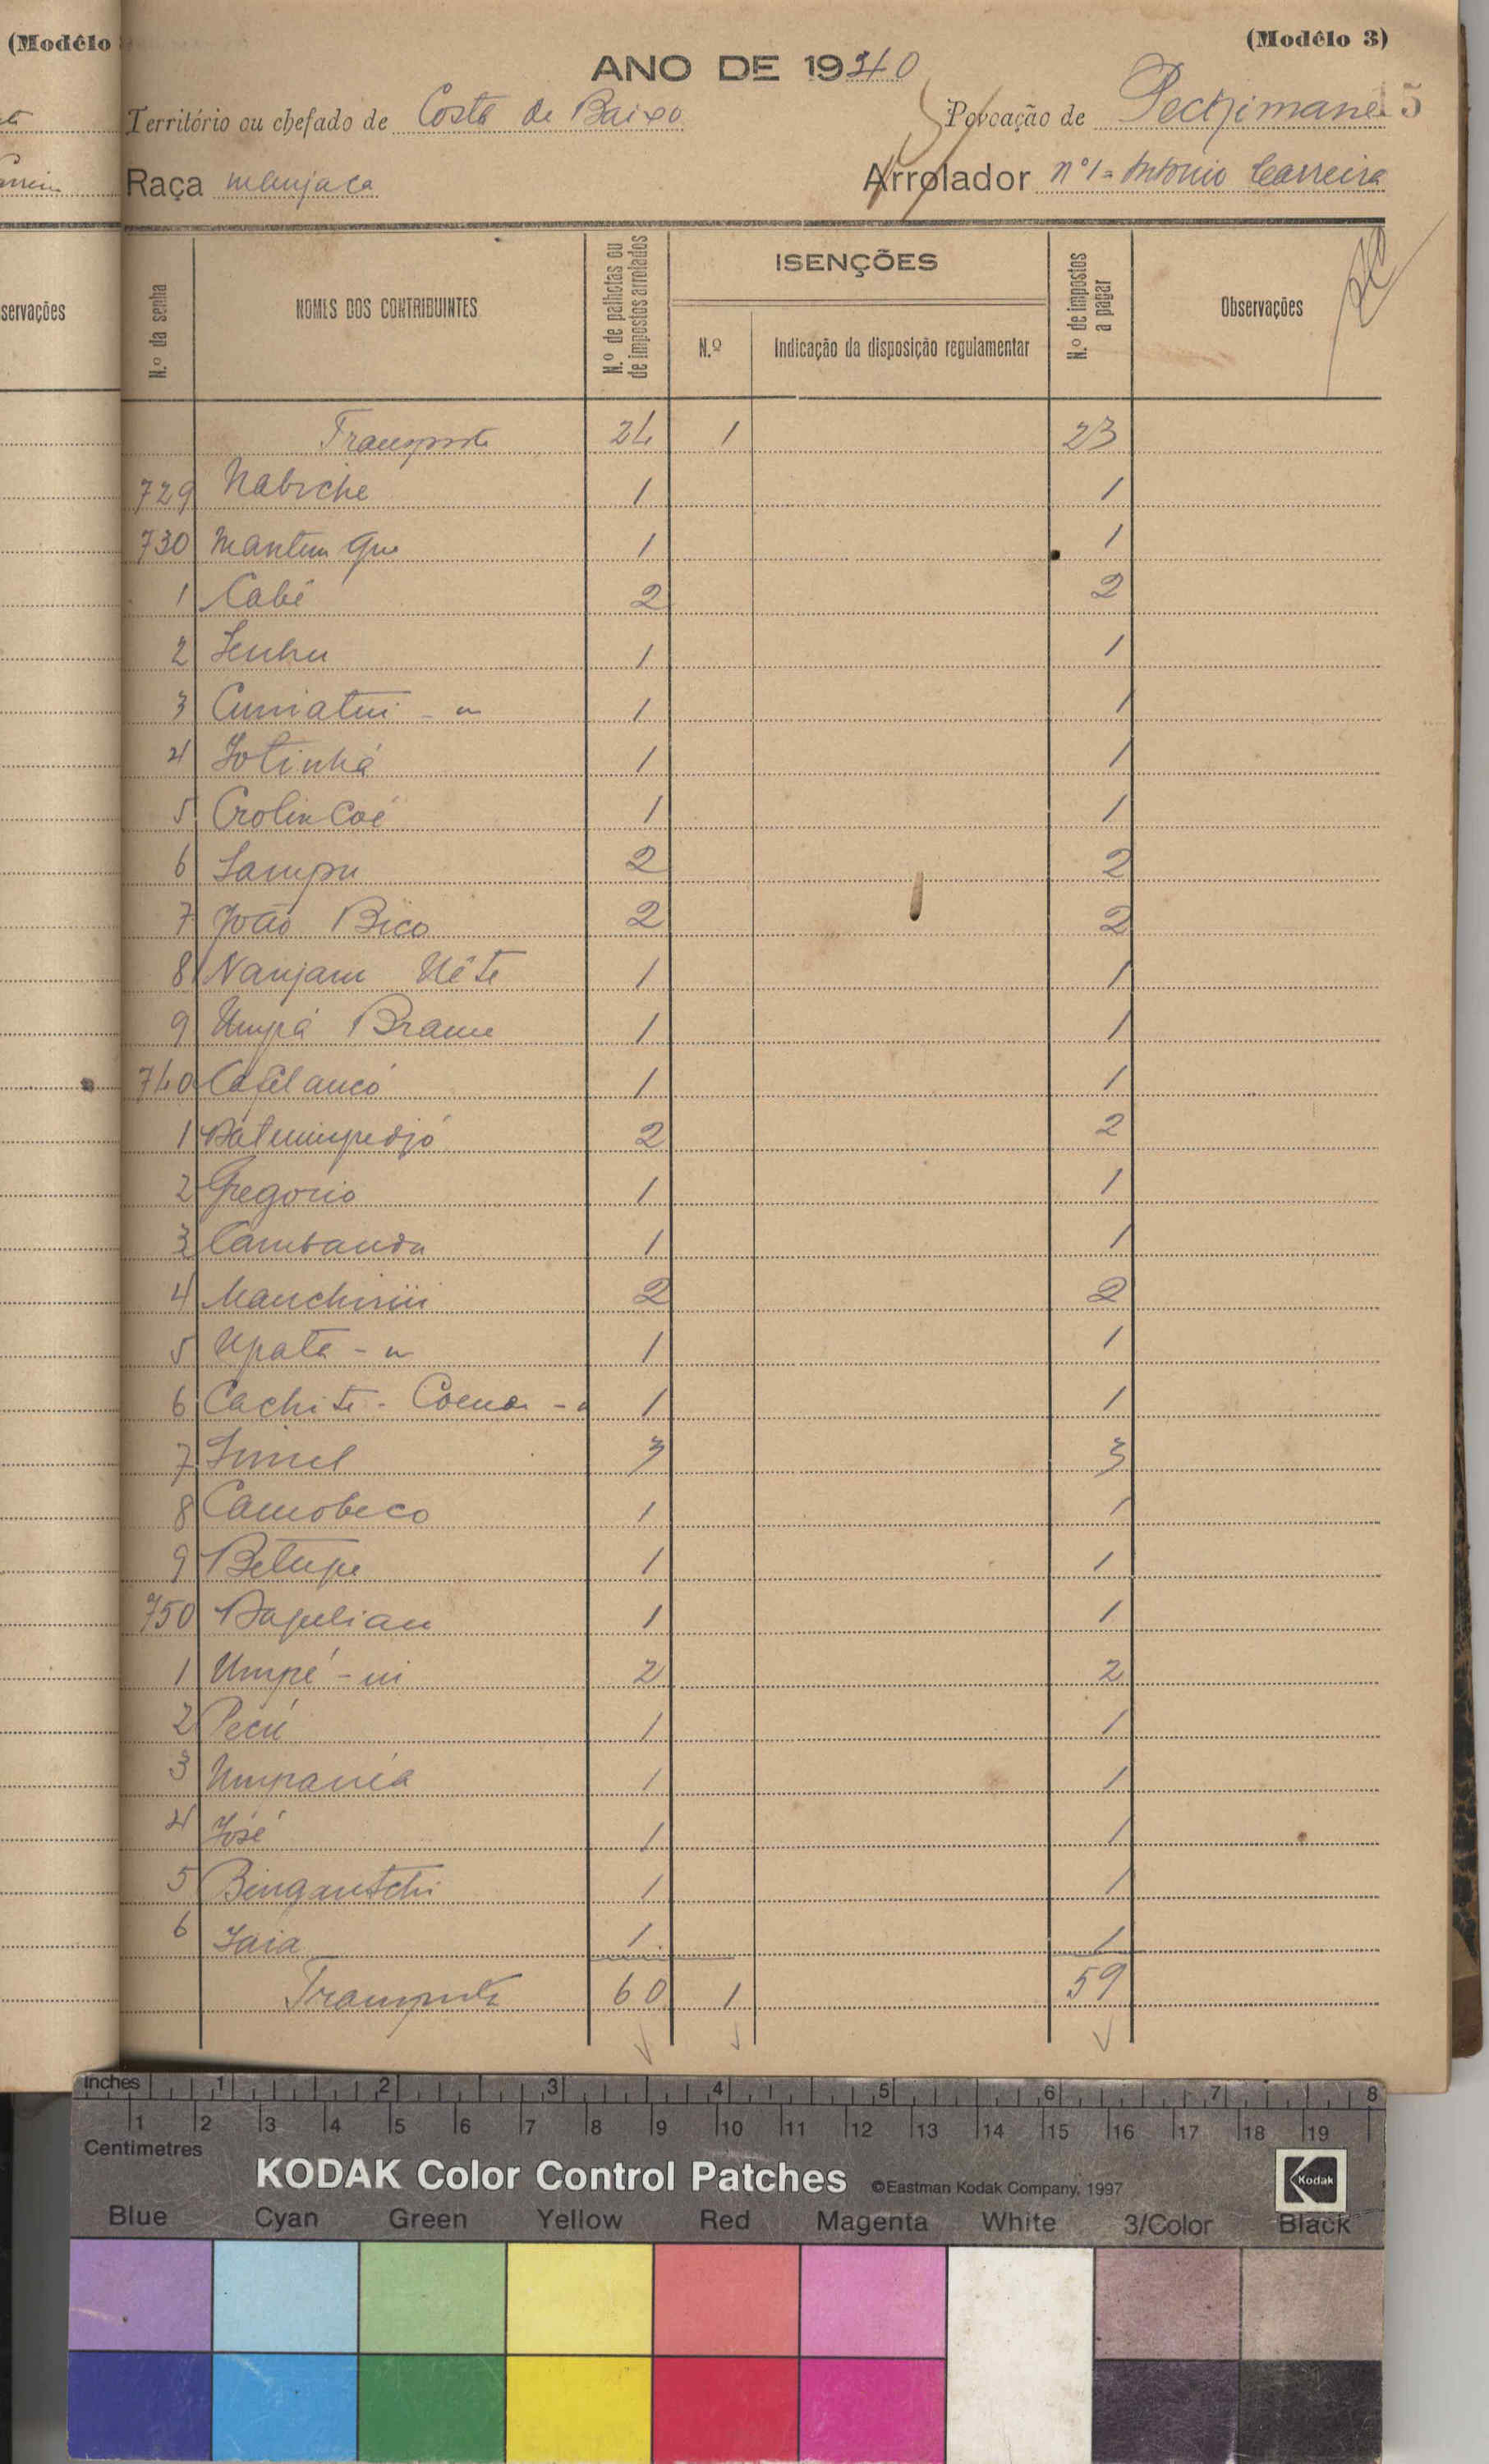 (Modêlo
(Modêlo 3)
ANO DE 1940
Território ou chefado de Costa de Baixo Povoação de Pechimane 5
Raça manjaca Arrolador nº 1 = António Carreira
servações
N.º da senha
NOMES DOS CONTRIBUINTES
N.º de palhotas ou de impostos arrolados
ISENÇÕES
N.º
Indicação da disposição regulamentar
N.º de impostos a pagar
Observações
Transporte 24 1 23
729 Nabiche 1 1
730 Mantum Que 1 1
1 Cabé 2 2
2 1 1
3 Cumiatui - 1 1
4 1 1
5 Crolin Coé 1 1
6 Sampu 2 2
7 João Bico 2 2
8 Nanjam Uéte 1 1
9 Umpá Brame 1 1
740 1 1
1 2 2
2 Gregorio 1 1
3 1 1
4 2 2
5 Upata - 1 1
6 Cachite - 1 1
7 3 3
8 Camobeco 1 1
9 Betupe 1 1
750 1 1
1 Umpé - ui 2 2
2 Pecú 1 1
3 1 1
4 José 1 1
5 Bingantchi 1 1
6 Jaia 1 1
Transporte 60 1 59
inches 1 2 3 4 5 6 7 8
1 2 3 4 5 6 7 8 9 10 11 12 13 14 15 16 17 18 19
Centimetres
KODAK Color Control Patches ©Eastman Kodak Company, 1997 Kodak
Blue Cyan Green Yellow Red Magenta White 3/Color Black